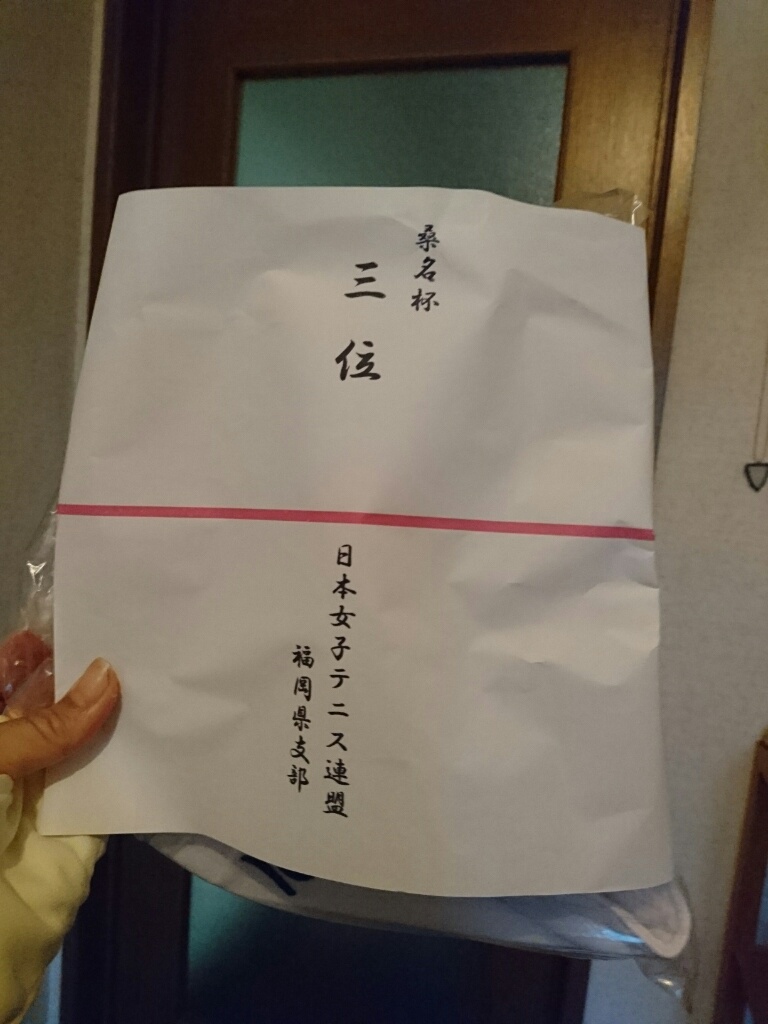 桑名杯
三位
日本女子テニス連盟
福岡県支部